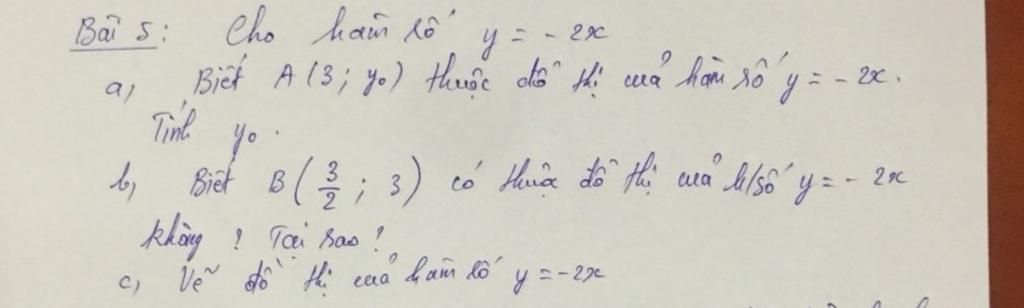 Bài 5: Cho hàm số y = - 2x
a, Biết A (3 ; y₀) thuộc đồ thị của hàm số y = - 2x.
Tính y₀.
b, Biết B ( 3/2 ; 3 ) có thuộc đồ thị của h/số y = - 2x
không ? Tại sao ?
c, Vẽ đồ thị của hàm số y = -2x